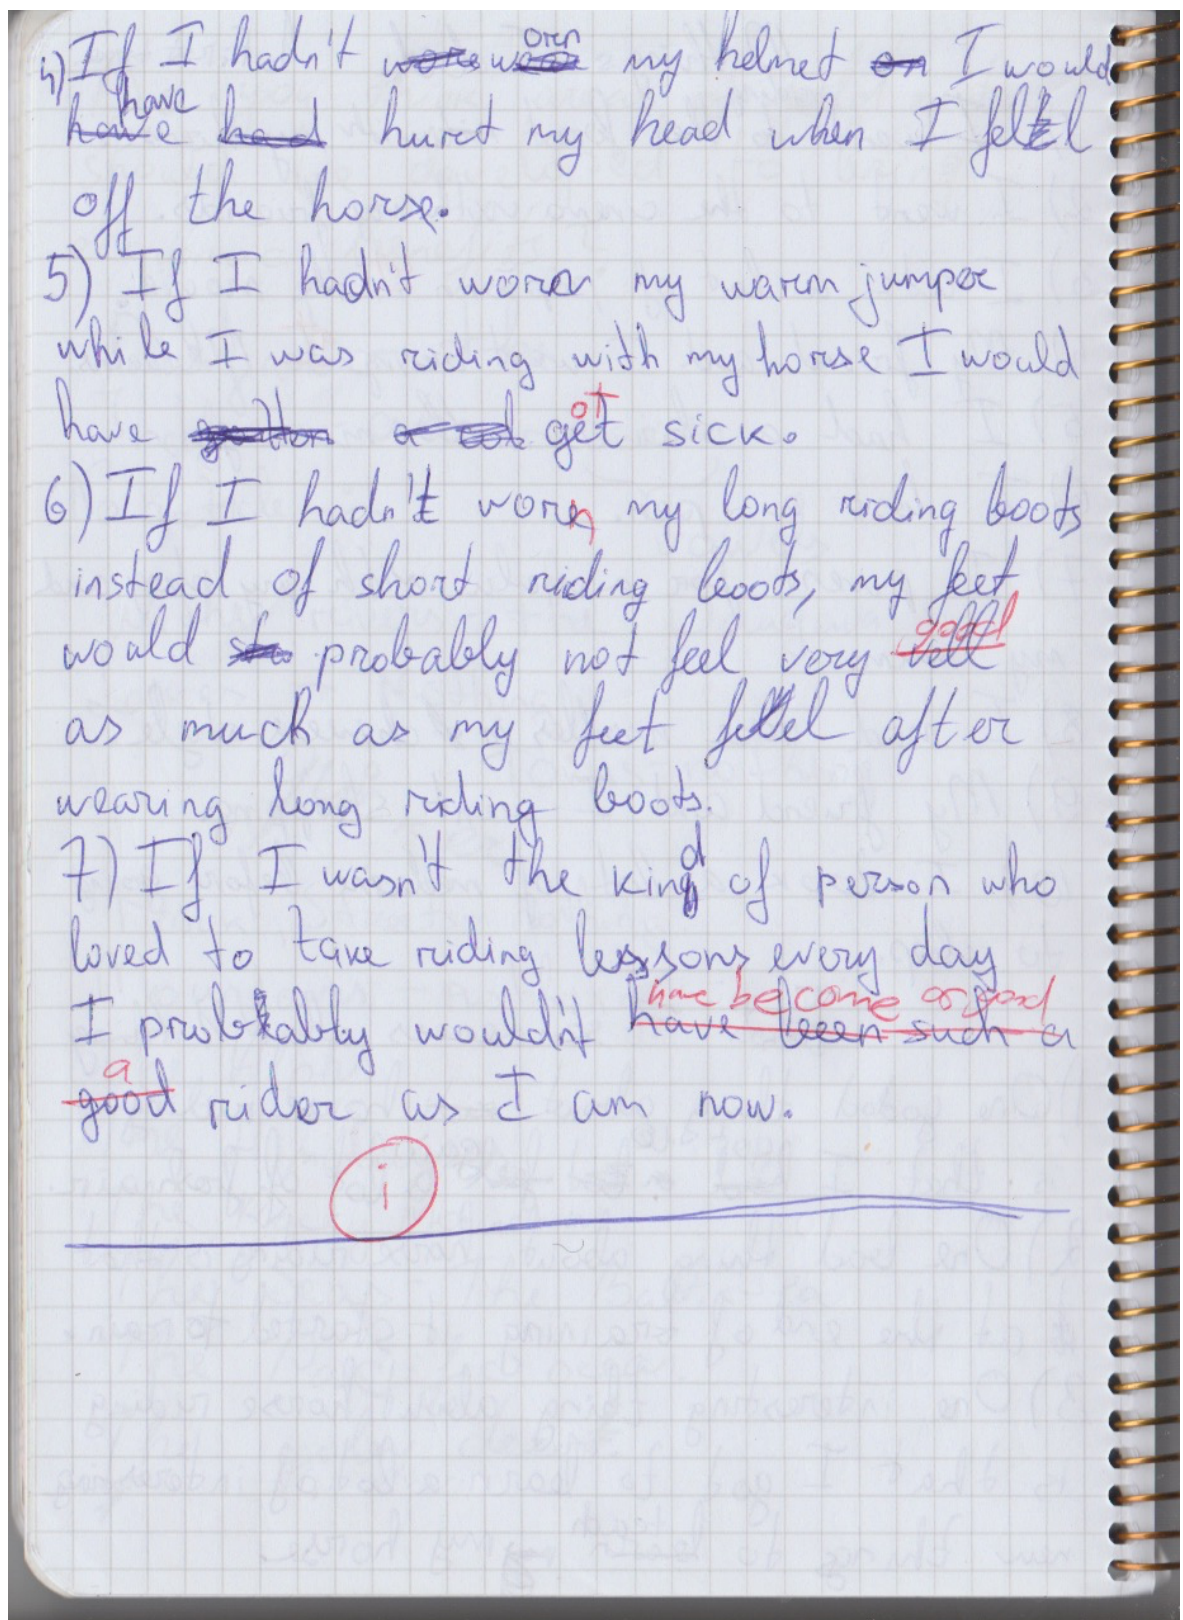 4) If I hadn't worn my helmet I would
have hurt my head when I fell
off the horse.
5) If I hadn't worn my warm jumper
while I was riding with my horse I would
have got sick.
6) If I hadn't worn my long riding boots
instead of short riding boots, my feet
would probably not feel very good
as much as my feet feel after
wearing long riding boots.
7) If I wasn't the kind of person who
loved to take riding lessons every day
have become as good
I probably wouldn't have been such a
a
good rider as I am now.
i